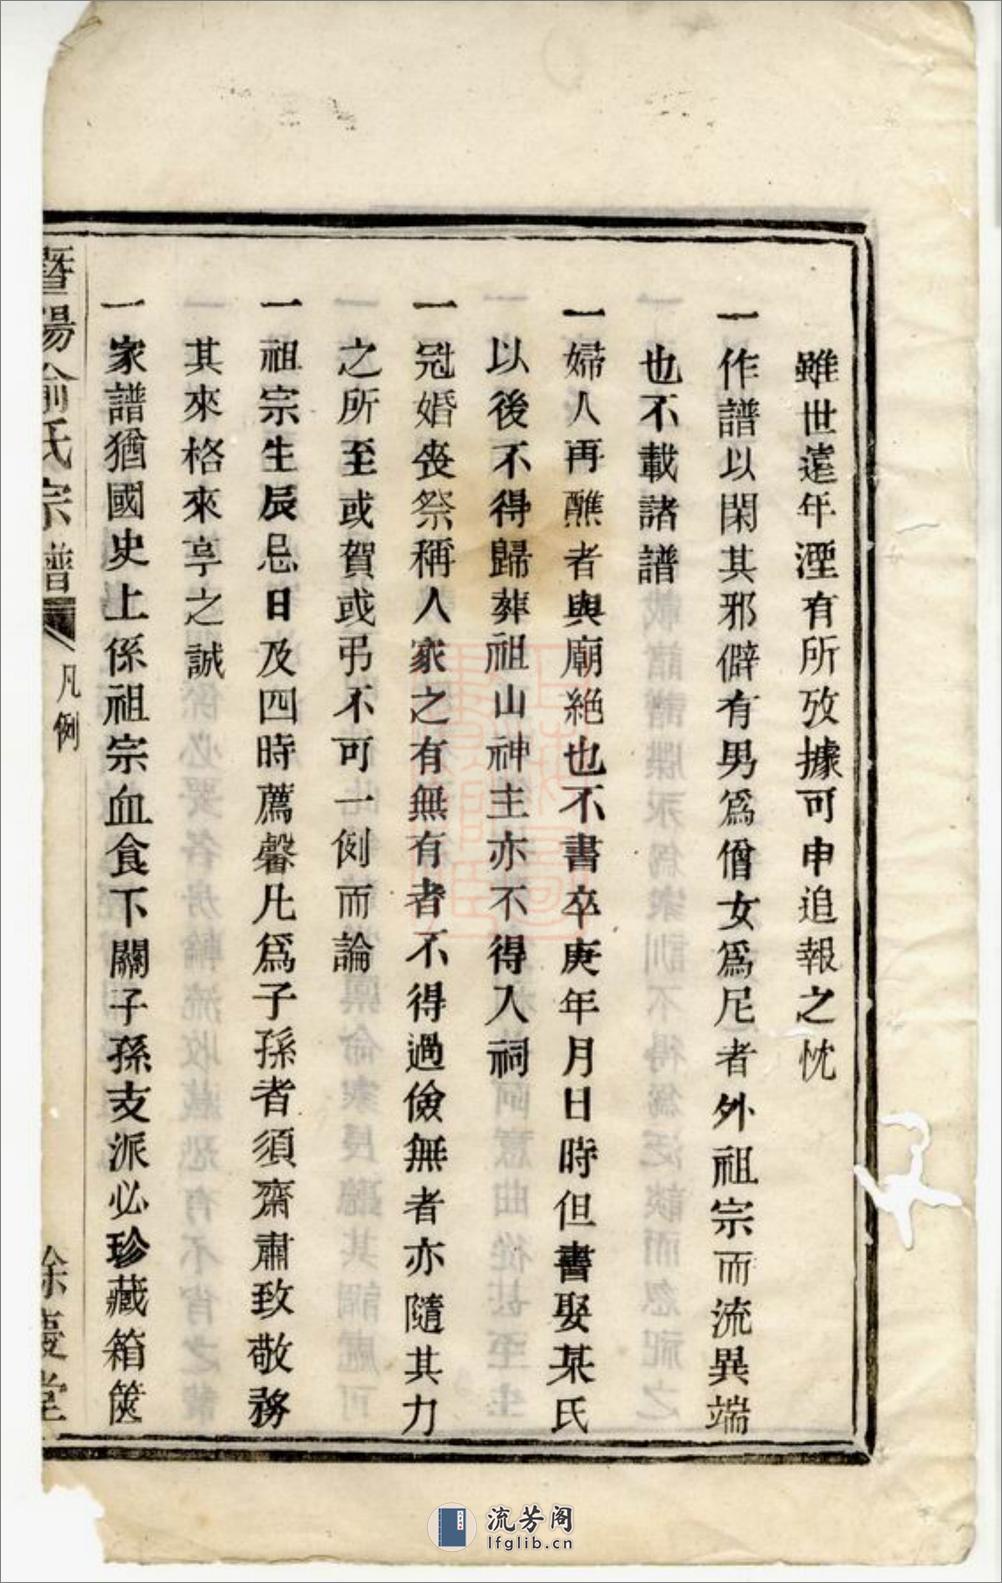 雖世遠年湮有所攷據可申追報之忱
一作譜以閑其邪僻有男爲僧女爲尼者外祖宗而流異端
也不載諸譜
一婦人再醮者與廟絶也不書卒庚年月日時但書娶某氏
以後不得歸葬祖山神主亦不得入祠
一冠婚喪祭稱人家之有無有者不得過儉無者亦隨其力
之所至或賀或弔不可一例而論
一祖宗生辰忌日及四時薦馨凡爲子孫者須齋肅致敬務
其來格來享之誠
一家譜猶國史上係祖宗血食下關子孫支派必珍藏箱篋
暨陽俞氏宗譜
凡例
餘慶堂
流芳阁
lfglib.cn